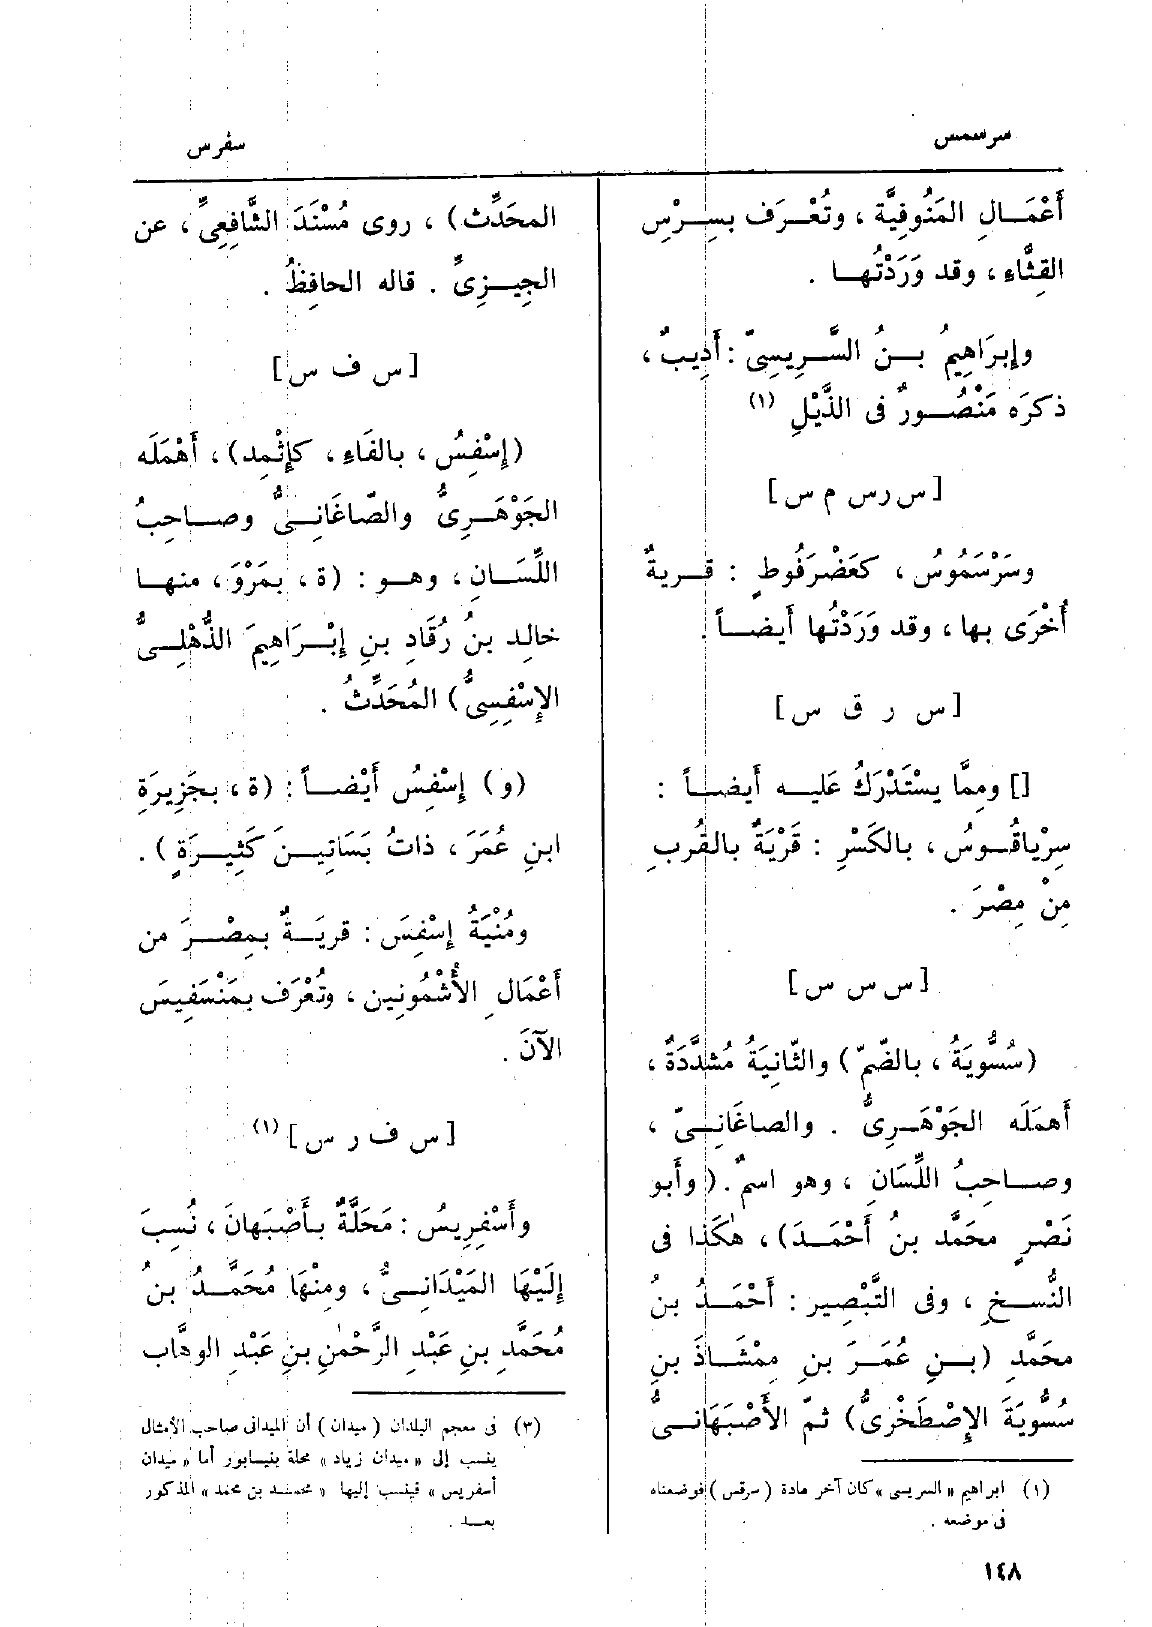 سرسمس
سفرس
أَعْمَالِ المَنُوفِيَّة ، وتُعْرَف بسِرْسِ
القِثَّاءِ ، وقد وَرَدْتُها .
وإبرَاهِيمُ بنُ السَّرِيسِىّ : أَدِيبٌ ،
ذكرَه مَنْصُورٌ فى الذَّيْلِ (١)
[ س ر س م س ]
وسَرْسَمُوسُ ، كعَضْرَفُوطٍ : قريةٌ
أُخْرَى بها ، وقد وَرَدْتُها أَيضاً .
[ س ر ق س ]
[] ومِمَّا يسْتَدْرَكُ عَليه أَيضاً :
سِرْياقُوسُ ، بالكَسْرِ : قَرْيَةٌ بالقُربِ
مِنْ مِصْرَ .
[ س س س ]
(سُسُّويَةُ ، بالضَّمّ) والثّانِيَةُ مُشدَّدَةٌ ،
أَهمَلَه الجَوْهَرِىُّ . والصاغَانِىّ ،
وصاحِبُ اللِّسَانِ ، وهو اسمٌ . ( وأَبو
نَصْرٍ محَمَّد بنُ أَحْمَدَ) ، هٰكَذا فى
النُّسخِ ، وفى التَّبْصِير : أَحْمَدُ بنُ
محَمَّدِ (بنِ عُمَرَ بنِ مِمْشَاذَ بنِ
سُسُّويَةَ الإِصْطَخْرِىُّ) ثمّ الأَصْبَهَانىُّ
(١) ابراهيم « السريسى » كان آخر مادة ( سرقس ) فوضعناه
فى موضعه .
المحَدِّث) ، روى مُسْنَدَ الشَّافِعِىِّ ، عن
الجِيزِىِّ . قاله الحافِظُ .
[ س ف س ]
(إِسْفِسُ ، بالفَاءِ ، كإِثْمِد) ، أَهْمَلَه
الجَوْهَرِىُّ والصّاغَانِىُّ وصاحِبُ
اللِّسَانِ ، وهو : (ة ، بمَرْوَ ، منها
خالِد بنُ رُقَادِ بنِ إِبْرَاهِيمَ الذُّهْلِىُّ
الإِسْفِسِىُّ) المُحَدِّثُ .
(و) إِسْفِسُ أَيْضاً : (ة ، بجَزِيرَةِ
ابنِ عُمَرَ ، ذاتُ بَسَاتِينَ كَثِيرَةٍ ) .
ومُنْيَةُ إِسْفِسَ : قريَةٌ بمِصْرَ من
أَعْمَالِ الأُشْمُونِين ، وتُعْرَف بمَنْسَفِيسَ
الآنَ .
[ س ف ر س ] (١)
وأَسْفِرِيسُ : مَحَلَّةٌ بأَصْبَهانَ ، نُسِبَ
إِلَيْهَا المَيْدَانِىُّ ، ومِنْهَا مُحَمَّدُ بنُ
مُحَمَّدِ بنِ عَبْدِ الرَّحْمٰنِ بنِ عَبْدِ الوهَّاب
(٣) فى معجم البلدان ( ميدان ) أن الميدانى صاحب الأمثال
ينسب إلى « ميدان زياد » محلة بنيسابور أما « ميدان
أسفريس » فينسب إليها « محمد بن محمد » المذكور
بعد .
١٤٨